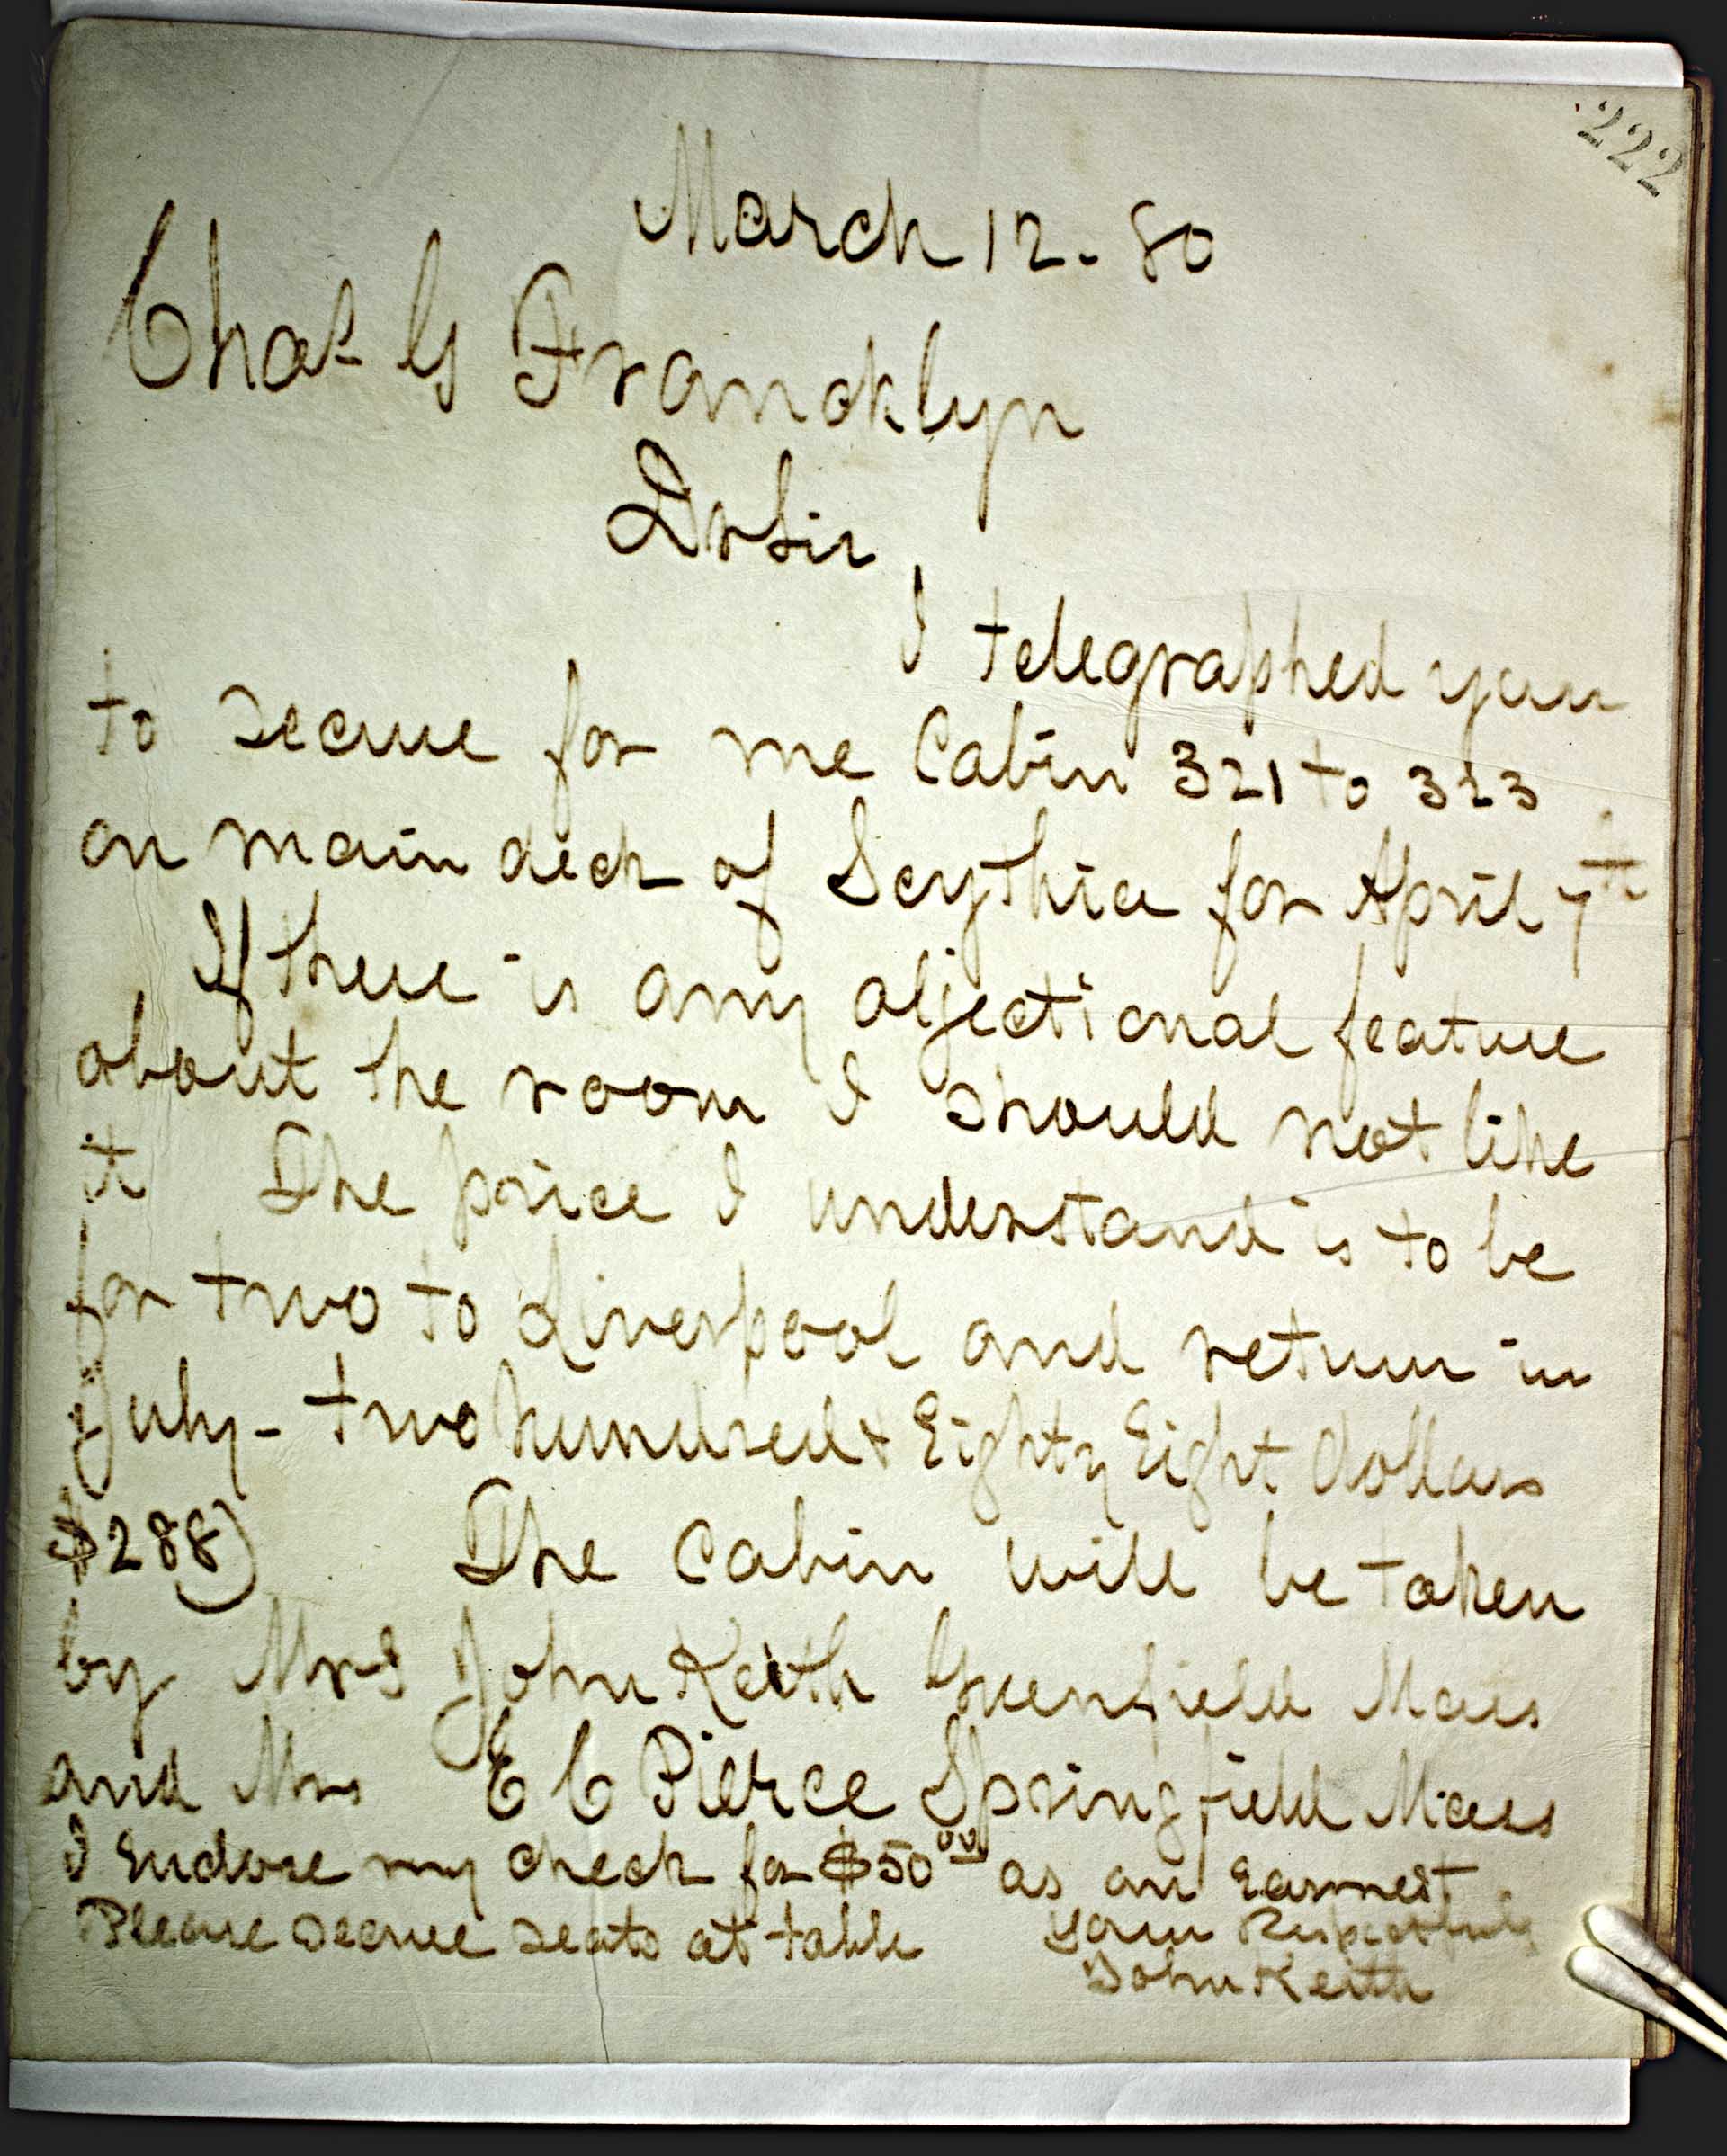 222
March 12. 80
Chas G Francklyn
Dr Sir,
I telegraphed you
to secure for me Cabin 321 to 323
on main deck of Scythia for April 7th
If there is any objectional feature
about the room I should not like
it The price I understand is to be
for two to Liverpool and return in
July - two hundred + Eighty Eight dollars
$288) The Cabin will be taken
by Mrs John Keith Greenfield Mass
and Mrs E C Pierce Springfield Mass
I Enclose my check for $50 00 as an Earnest
Please secure seats at table Your Respectfully
John Keith